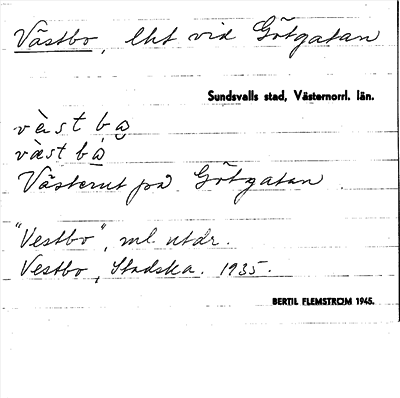 Västbo, lht vid Götgatan
Sundsvalls stad, Västernorrl. län.
vàst bo̯
väst bo
Västerut på Götgatan.
"Vestbo", ml. utdr.
Vestbo, Stadska. 1935.
BERTIL FLEMSTRÖM 1945.